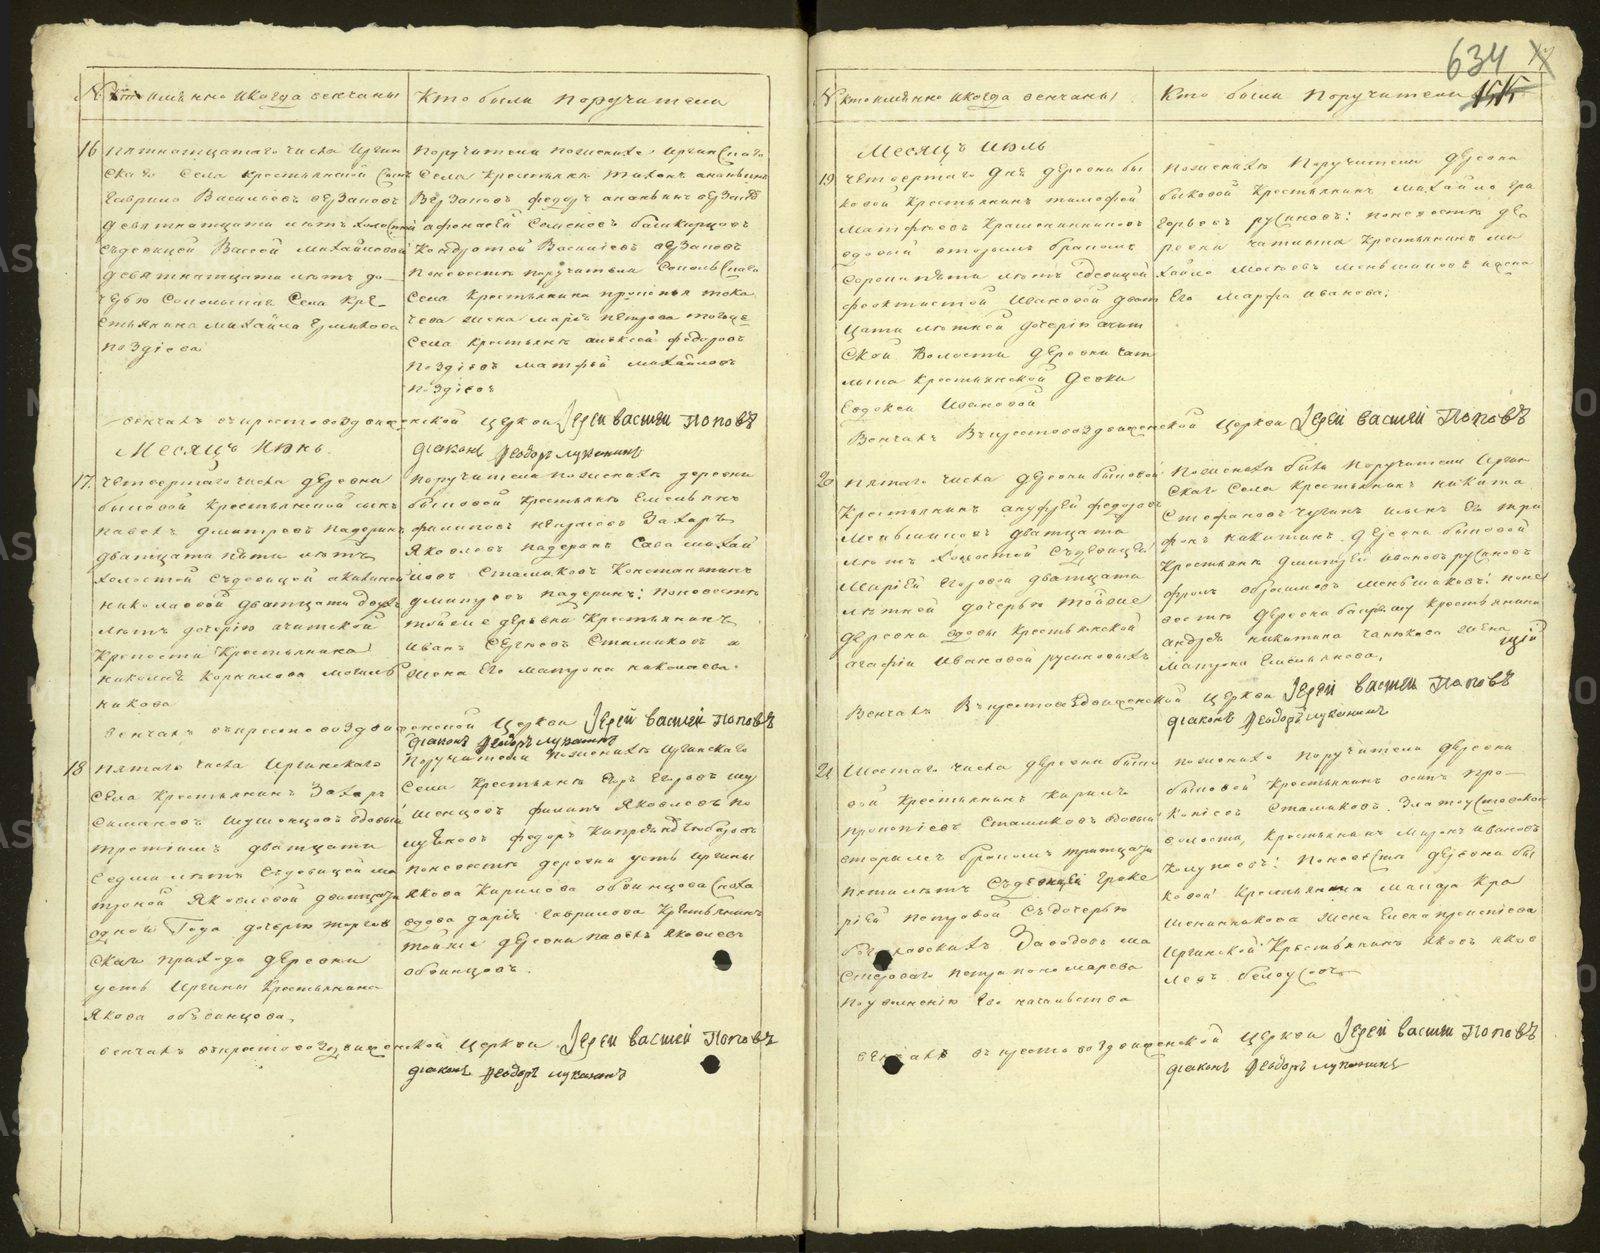 634
кто имѣнно и когда венчаны
Кто были поручители
16
пятнатцатаго числа Иргин
скаго села крестьянской сынъ
гаврило Васильевъ
девятнатцати летъ холостой
съ девицей Васеой михайловой
девятнатцати летъ до
черью сокольскаго села кре
стьянина михайла
поздѣева
Поручители по женихѣ иргинскаго
села крестьяня тихонъ ананьинъ
федотъ ананьинъ
афонасей семеновъ башкирцовъ
Кондротей Василиевъ
по невестѣ поручители сокольскаго
села крестьянина прокопья тока
чева жена марья петрова тогоже
села крестьянъ алѣксей федоровъ
поздѣевъ матфей михайловъ
поздѣевъ
венчанъ въ крестовоздвиженской церкви Іерей васілей Поповъ
діаконъ Феодоръ лукканинъ
Месяцъ Июнь
17
четвертаго числа деревни
быковой крестьянской сынъ
павелъ дмитревъ падеринъ
дватцати пяти летъ
холостой съ девицей акилиной
николаевой дватцати двухъ
летъ дочерію ачитской
крепости крестьянина
николая корнилова
никова
поручители по женихѣ деревни
быковой крестьяня Емельянъ
филиповъ некрасовъ Захаръ
Яковлевъ падеринъ Сава михай
ловъ Стамиковъ Константинъ
дмитревъ падеринъ: по невестѣ
тойже деревни крестьянинъ
иванъ Сергеевъ Стамиковъ и
жена его матрона николаева
венчанъ въ крестовоздвиженской церкви Іерей васілей Поповъ
діаконъ Феодоръ лукканинъ
18
пятаго числа иргинскаго
села крестьянинъ Захаръ
Симановъ шушенцовъ вдовый
третіимъ дватцати
седми летъ съ девицей ма
троной Яковлевой дватцати
одного года дочерью торгов
скаго прихода деревни
усть иргины крестьянина
Якова обвинцова
Поручители по женихѣ иргинскаго
села крестьяня Егоръ Егоровъ шу
шенцовъ филипъ Яковлевъ по
по невестѣ деревни усть иргины
Якова Кирилова обвинцова сноха
вдова дарья гаврилова крестьянинъ
тойже деревни павелъ Яковлевъ
обвинцовъ
венчанъ въ крестовоздвиженской церкви Іерей васілей Поповъ
діаконъ Феодоръ лукканинъ
кто имѣнно и когда венчаны
Кто были поручители
Месяцъ июль
19
четвертаго дня деревни бы
ковой крестьянинъ тимофей
матфеевъ Крашенинниковъ
вдовой вторымъ бракомъ
сорока пяти летъ съ девицей
феоктистой ивановой дват
цати летней дочерію ачит
ской волости деревни чат
лыка крестьянской девки
Евдокеи ивановой
по женихѣ поручители деревни
быковой крестьянинъ михайло гри
горьевъ русиновъ: по невестѣ де
ревни чатлыка крестьянинъ ми
хайло мокѣевъ меньшиковъ и жена
Его марфа иванова;
Венчанъ въ крестовоздвиженской церкви Іерей васілей Поповъ
20
пятаго числа деревни быковой
крестьянинъ ануфрей федоровъ
меньшиковъ дватцати
летъ холостой съ девицей
марией Егоровой дватцати
летней дочерью тойже
деревни вдовы крестьянской
агафіи ивановой русиновыхъ
по женихѣ были поручители иргин
скаго села крестьянинъ никита
Стефановъ чугинъ сынъ Ег три
фонъ никитинъ деревни быковой
крестьянъ дмитрей ивановъ русиновъ
фролъ меньшиковъ: по не
весте деревни крестьянина
андрея никитина жена
матрона Емельянова,
Венчанъ въ крестовоздвиженской церкви Іерей васілей Поповъ
діаконъ Феодоръ лукканинъ
21
Шестаго числа деревни быко
вой крестьянинъ Кирилъ
прокопіевъ Стамиковъ вдовый
вторымъ бракомъ тритцати
пяти летъ съ девицей глике
рией петровой съ дочерью
заводовъ ма
стероваго петра пономарева
по уволнению его начальства
по женихѣ поручители деревни
быковой крестьянинъ осипъ про
копіевъ Стамиковъ. Златоустовской
волости, крестьянинъ миронъ ивановъ
по невестѣ деревни бы
ковой крестьянина макара кра
шенинникова жена Елена прокопіева
иргинской крестьянинъ яковъ яков
левъ белоусовъ
венчанъ въ крестовоздвиженской церкви Іерей васілей Поповъ
діаконъ Феодоръ лукканинъ
METRIKI.GASO-URAL.RU